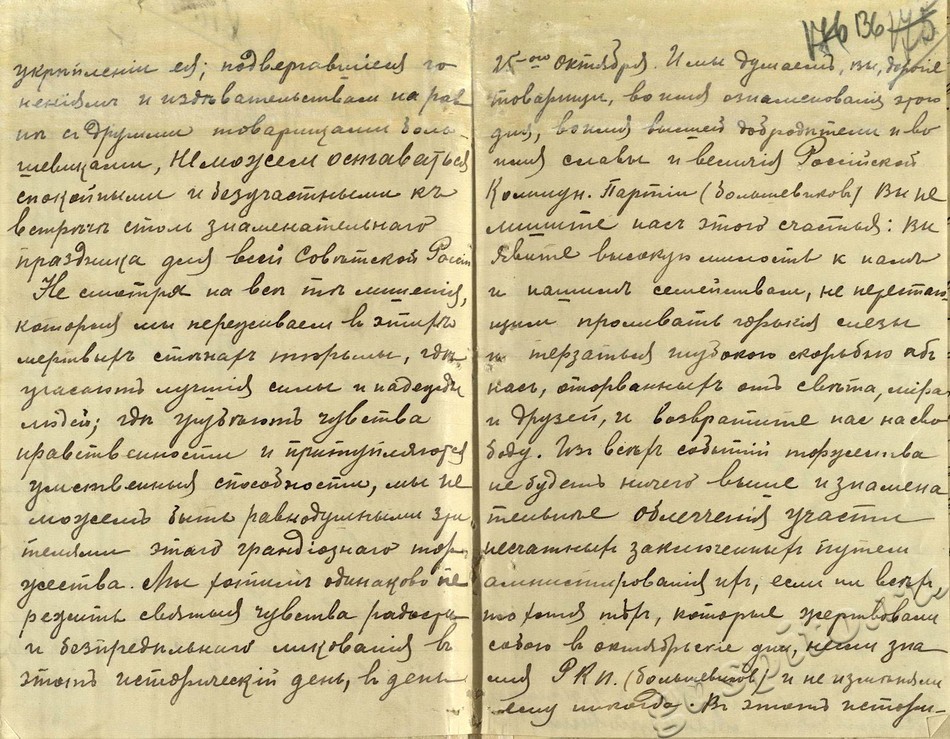 176 136 175
укрѣпленіи ея; подвергавшіеся го
неніямъ и издѣвательствам на рав
нѣ съ другими товарищами боль-
шевиками, не можем оставаться
спокойными и безучастными къ
встрѣчѣ столь знаменательнаго
праздника для всей Совѣтской Россіи
Не смотря на всѣ тѣ лишенія,
которыя мы переживаем в этихъ
мертвыхъ стѣнах тюрьмы, гдѣ
угасают лучшія силы и надежды
людей; гдѣ грубѣютъ чувства
нравственности и притупляются
умственныя способности, мы не
можемъ быть равнодушными зри
телями этаго грандіознаго тор-
жества. Мы хотимъ одинаково пе
режить святыя чувства радости
и безпредѣльнаго ликованія въ
этотъ историческій день, в день
25-ого Октября. И мы думаемъ, вы, дорогіе
товарищи, во имя ознаменованія этого
дня, во имя высшей добродѣтели и во
имя славы и величія Россійской
Коммун. Партіи (большевиков) Вы не
лишите насъ этого счастья: Вы
явите высокую милость к намъ
и нашимъ семействам, не перестаю
щим проливать горькія слезы
и терзаться глубокою скорбью объ
насъ, оторванныхъ отъ свѣта, мира
и друзей, и возвратите нас на сво
боду. Изъ всѣхъ событій торжества
не будетъ ничего выше и знамена
тельнѣе облегченія участи
несчастныхъ заключенныхъ путем
амнистированія ихъ, если не всѣхъ
то хотя тѣхъ, которые жертвовали
собою в октябрьскіе дни, несли зна
мя Р.К.П. (большевиков) и не измѣняли
ему никогда. Въ этотъ истори-